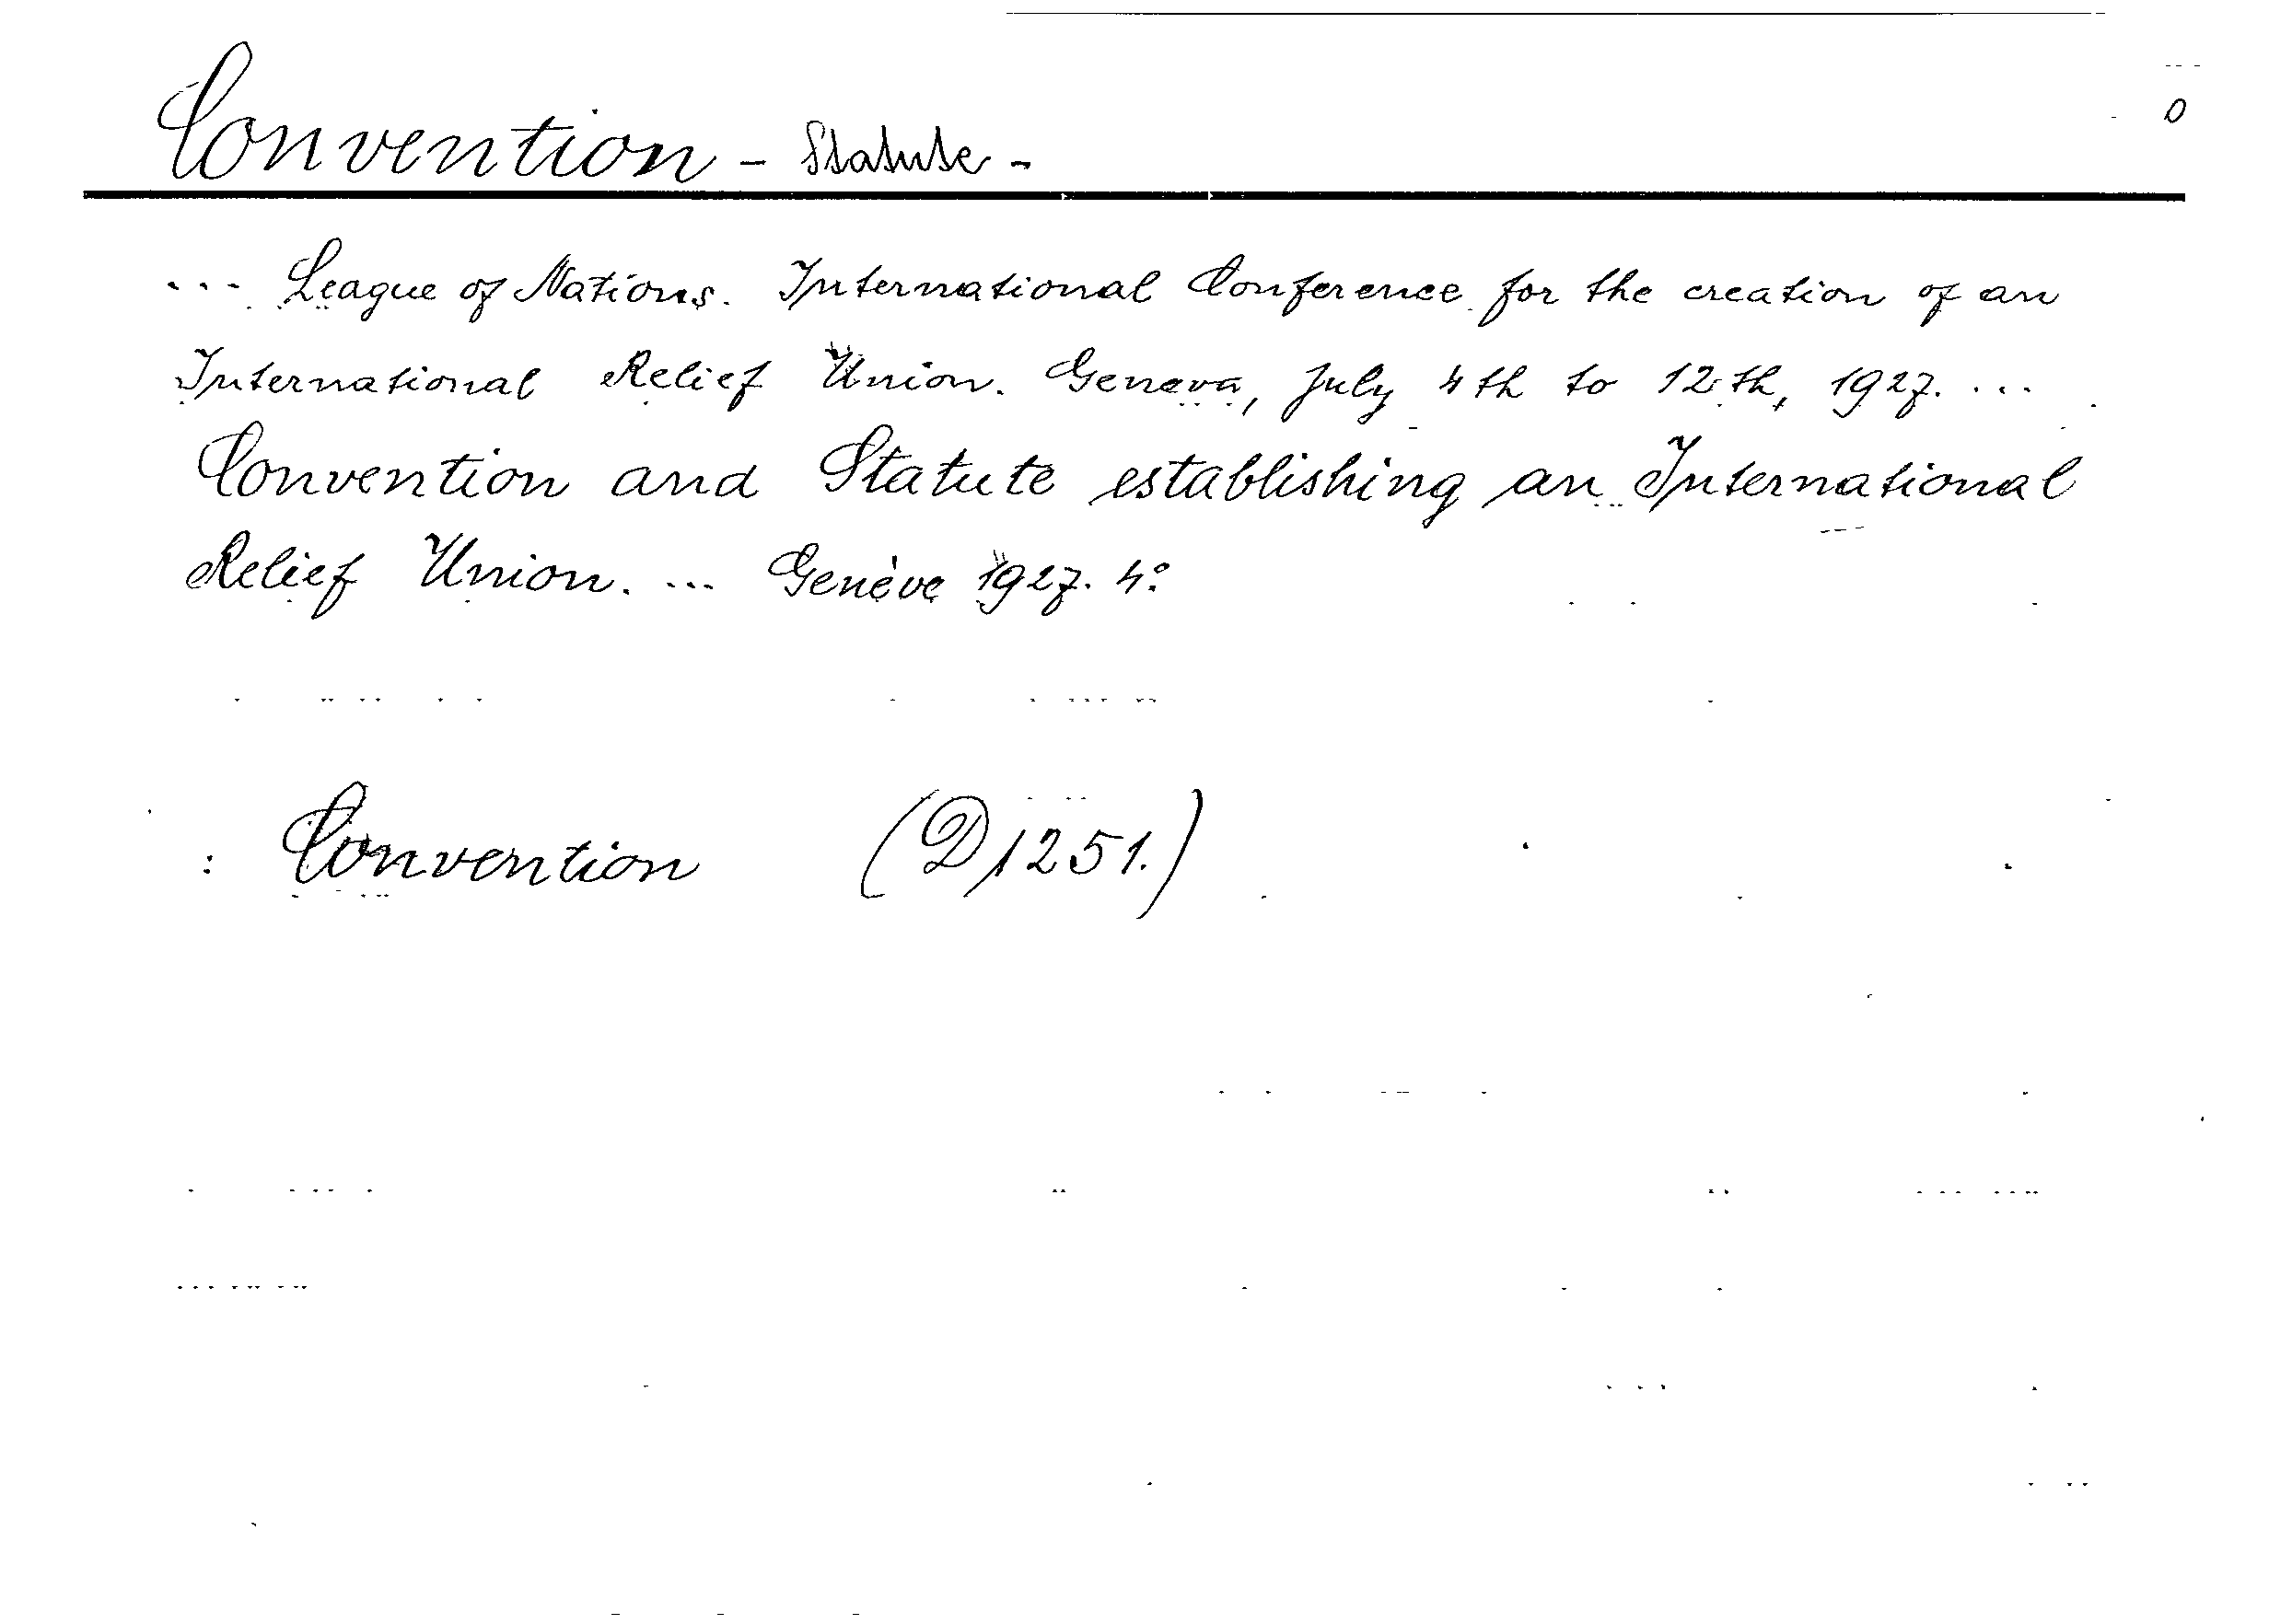 0
Convention - Statute -
... League of Nations. International Conference for the creation of an
International Relief Union. Geneva, July 4th to 12th, 1927. ...
Convention and Statute establishing an International
Relief Union. ... Genève 1927. 4:o
: Convention (D1251.)